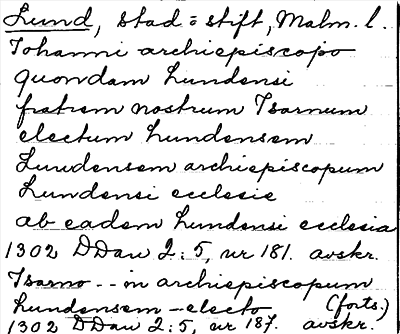 Lund, stad o stift, Malm. l.
Johanni archiepiscopo
quondam Lundensi
fratrem nostrum Isarnum
electum Lundensem
Lundensem archiepiscopum
Lundensi ecclesie
ab eadem Lundensi ecclesia
1302 DDan 2:5, nr 181. avskr.
Isarno -- in archiepiscopum
Lundensem - electo (forts.)
1302 DDan 2:5, nr 187. avskr.